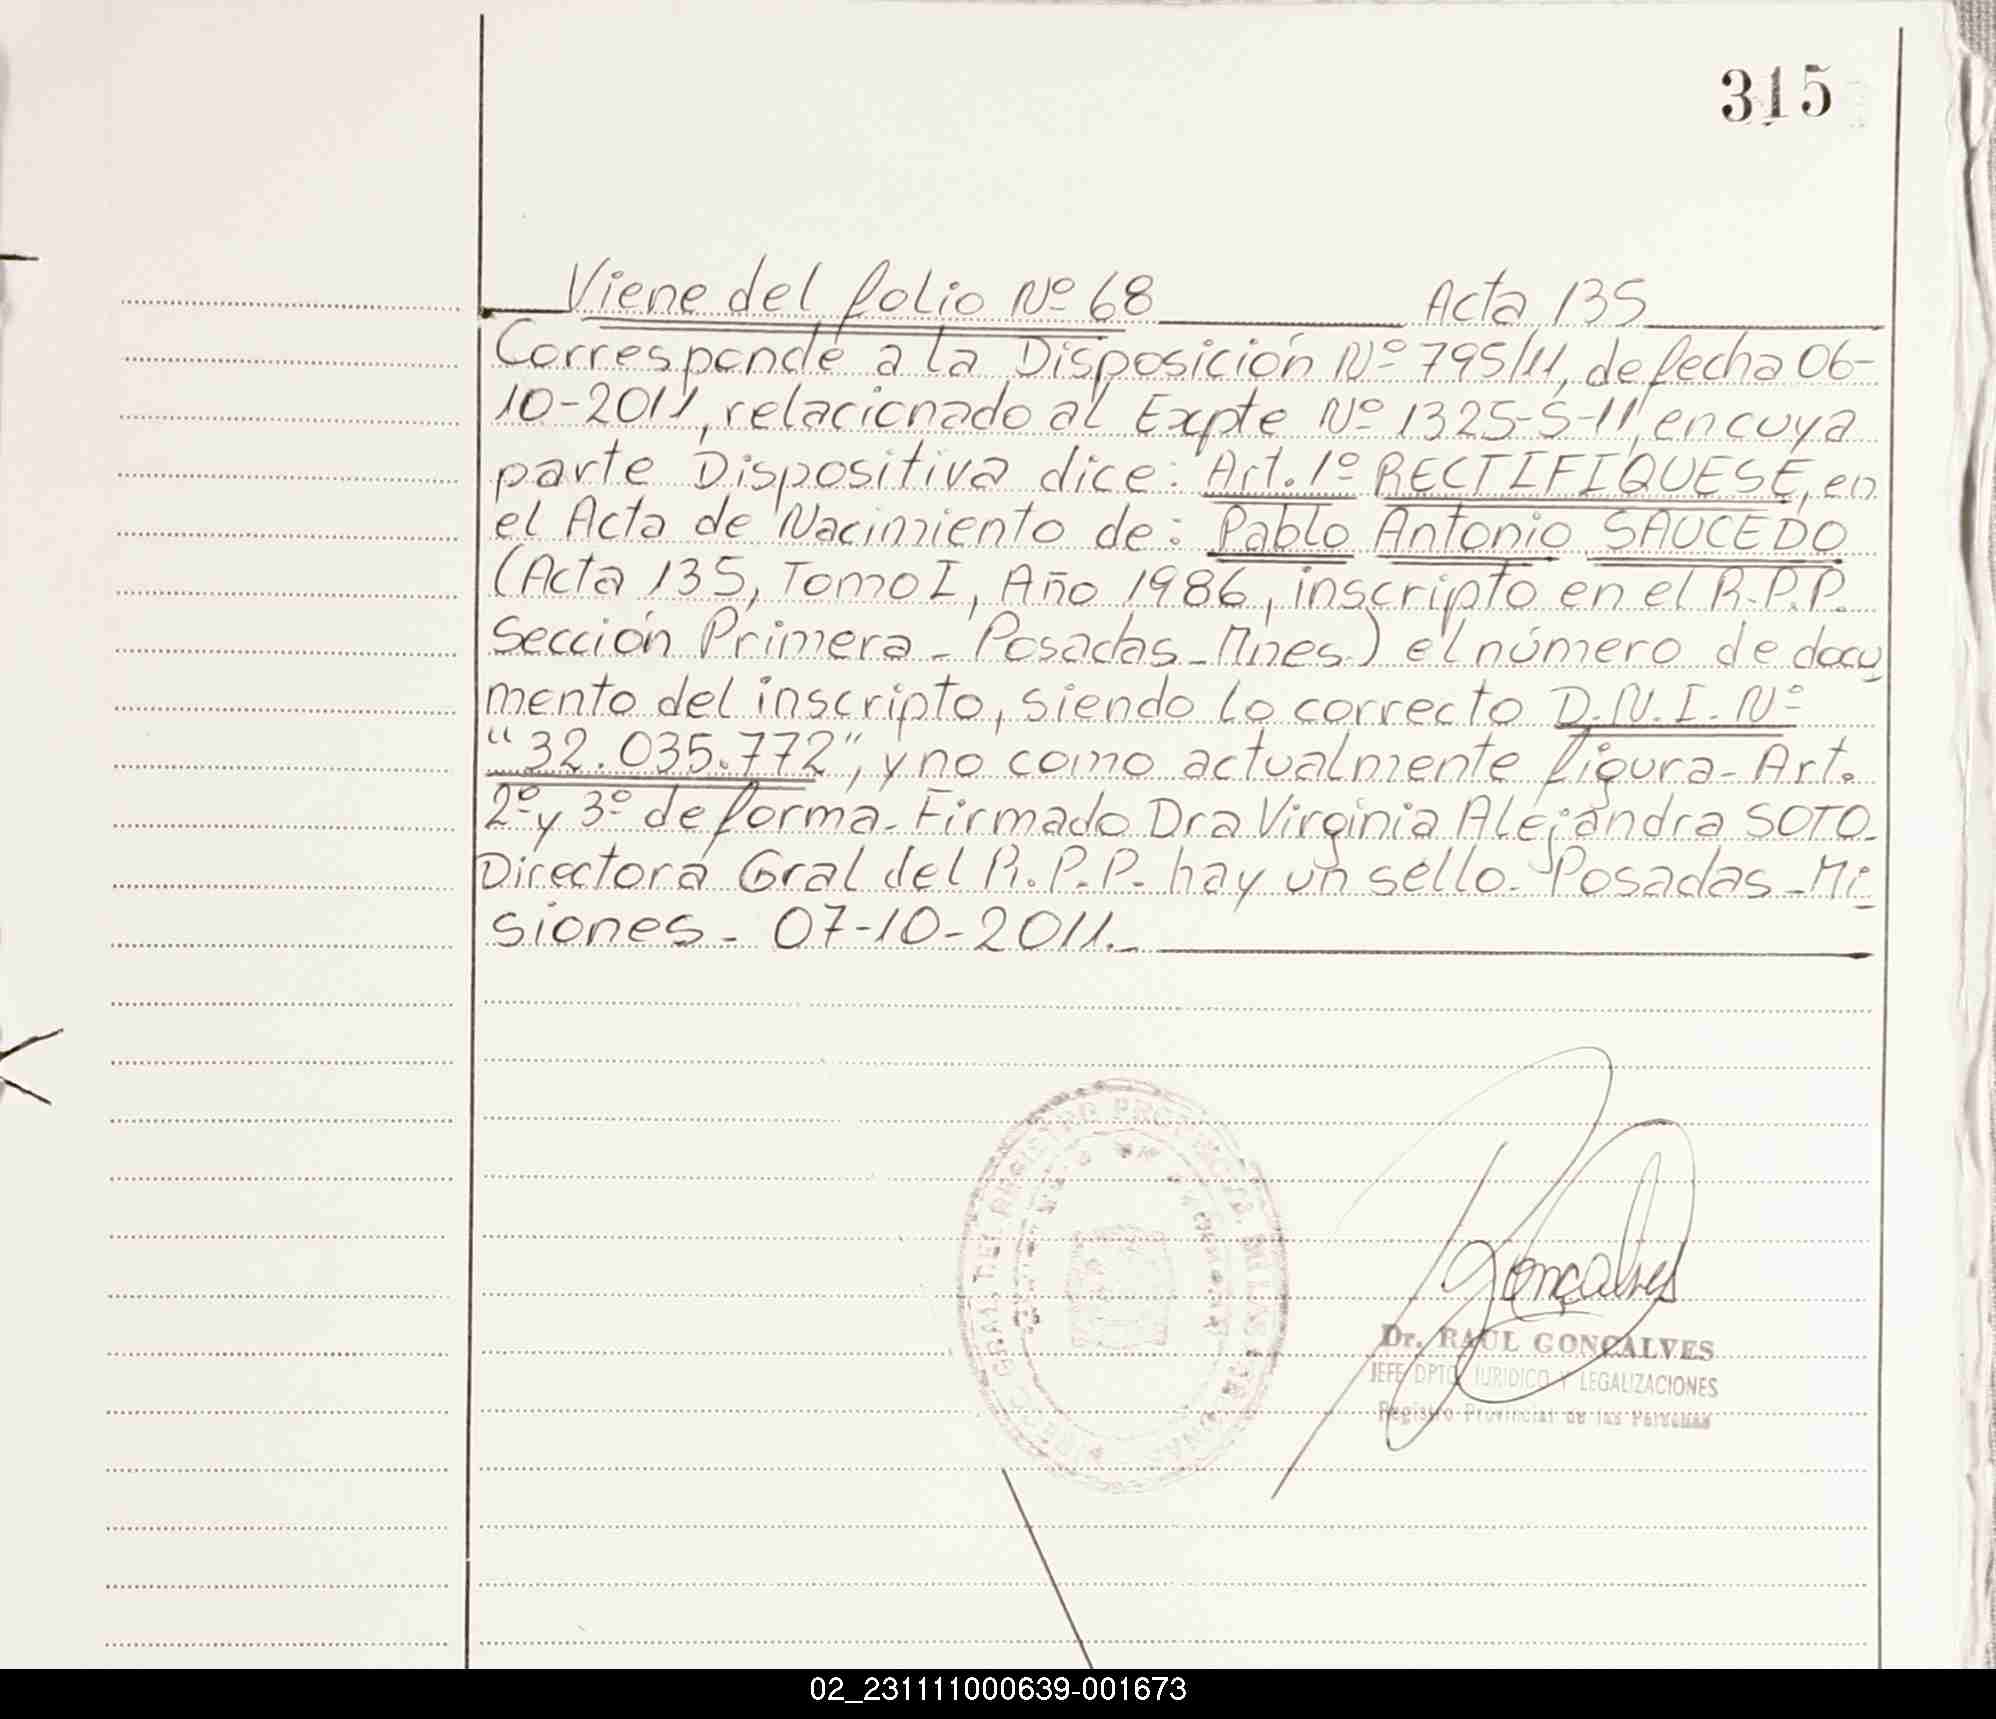 315
Viene del folio Nº 68 Acta 135
Corresponde a la Disposición Nº 795/11, de fecha 06-
10-2011, relacionado al Expte Nº 1325-S-11, en cuya
parte Dispositiva dice: Art. 1º RECTIFIQUESE, en
el Acta de Nacimiento de: Pablo Antonio SAUCEDO
(Acta 135, Tomo I, Año 1986, inscripto en el R.P.P.
Sección Primera - Posadas - Mnes.) el número de docu
mento del inscripto, siendo lo correcto D.N.I. Nº
"32.035.772", y no como actualmente figura - Art.
2º y 3º de forma - Firmado Dra Virginia Alejandra SOTO -
Directora Gral del R.P.P. hay un sello - Posadas - Mi
siones - 07-10-2011. -
DIRECC. GRAL. DEL REGISTRO PROVINCIAL DE LAS PERSONAS
Gonçalves
Dr. RAUL GONÇALVES
JEFE DPTO. JURIDICO Y LEGALIZACIONES
Registro Provincial de las Personas
02_231111000639-001673